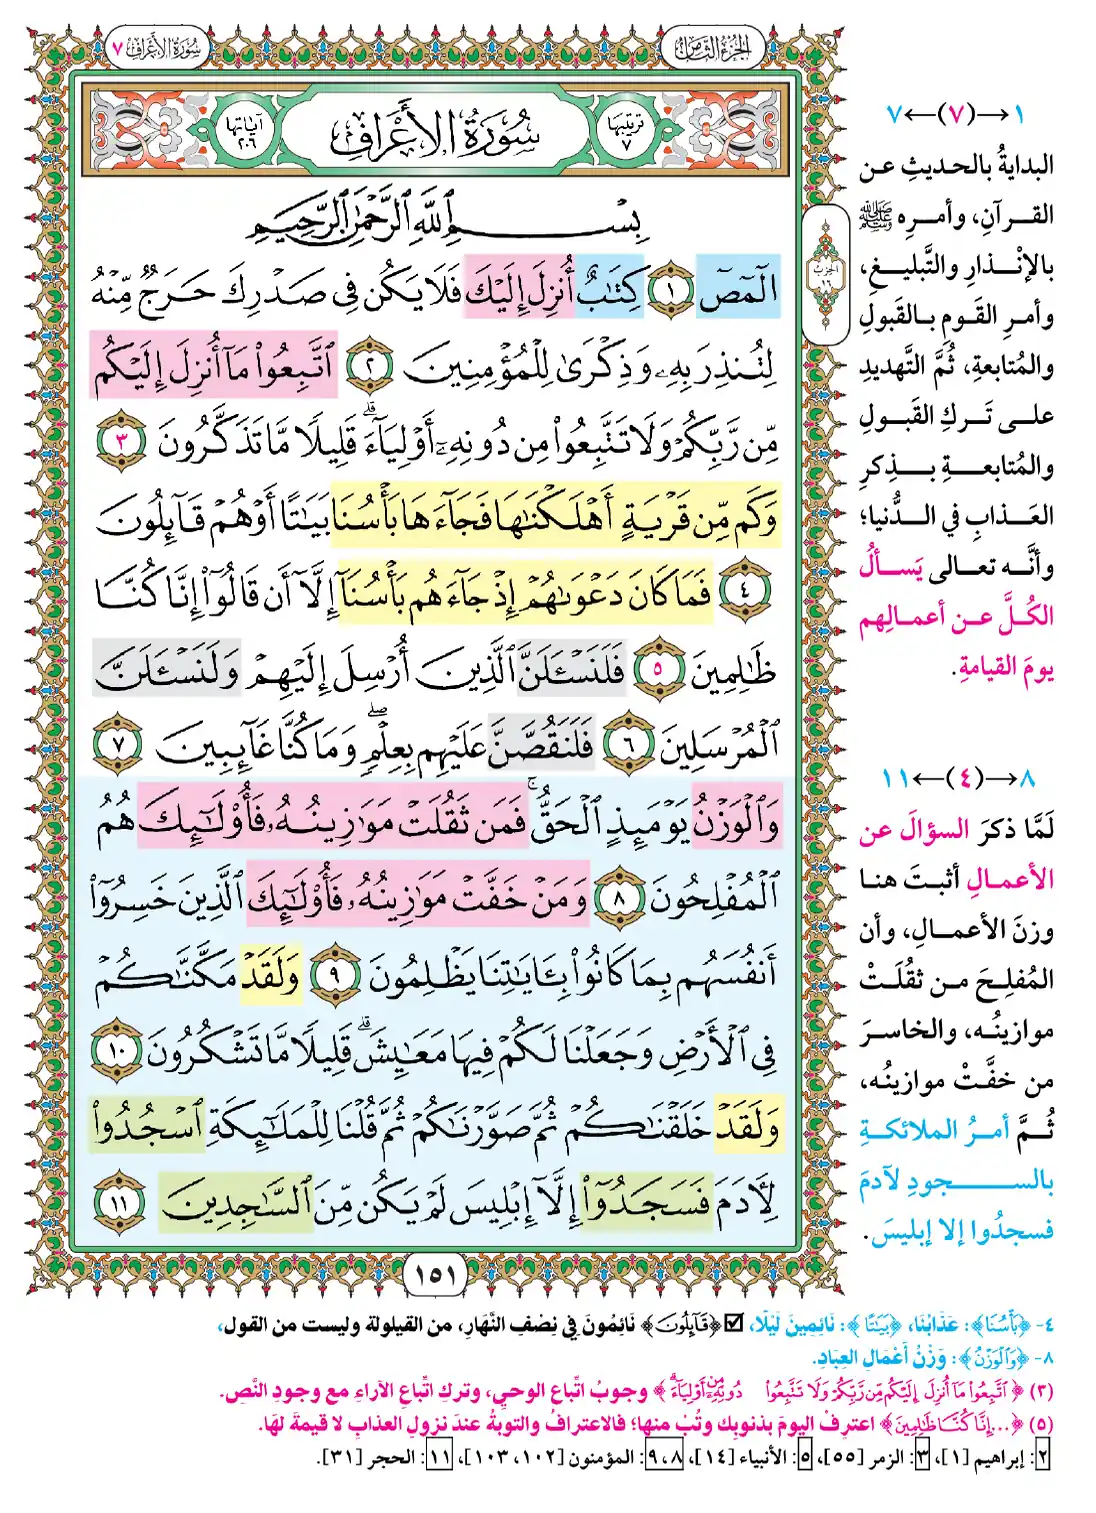 الجزء الثامن
سورة الأعراف ٧
ترتيبها ٧
سُورَةُ الأَعْرَافِ
آياتها ٢٠٦
بِسْمِ ٱللَّهِ ٱلرَّحْمَٰنِ ٱلرَّحِيمِ
الٓمٓصٓ ١ كِتَٰبٌ أُنزِلَ إِلَيْكَ فَلَا يَكُن فِى صَدْرِكَ حَرَجٌ مِّنْهُ
لِتُنذِرَ بِهِۦ وَذِكْرَىٰ لِلْمُؤْمِنِينَ ٢ ٱتَّبِعُوا۟ مَآ أُنزِلَ إِلَيْكُم
مِّن رَّبِّكُمْ وَلَا تَتَّبِعُوا۟ مِن دُونِهِۦٓ أَوْلِيَآءَ ۗ قَلِيلًا مَّا تَذَكَّرُونَ ٣
وَكَم مِّن قَرْيَةٍ أَهْلَكْنَٰهَا فَجَآءَهَا بَأْسُنَا بَيَٰتًا أَوْ هُمْ قَآئِلُونَ
٤ فَمَا كَانَ دَعْوَىٰهُمْ إِذْ جَآءَهُم بَأْسُنَآ إِلَّآ أَن قَالُوٓا۟ إِنَّا كُنَّا
ظَٰلِمِينَ ٥ فَلَنَسْـَٔلَنَّ ٱلَّذِينَ أُرْسِلَ إِلَيْهِمْ وَلَنَسْـَٔلَنَّ
ٱلْمُرْسَلِينَ ٦ فَلَنَقُصَّنَّ عَلَيْهِم بِعِلْمٍ ۖ وَمَا كُنَّا غَآئِبِينَ ٧
وَٱلْوَزْنُ يَوْمَئِذٍ ٱلْحَقُّ ۚ فَمَن ثَقُلَتْ مَوَٰزِينُهُۥ فَأُو۟لَٰٓئِكَ هُمُ
ٱلْمُفْلِحُونَ ٨ وَمَنْ خَفَّتْ مَوَٰزِينُهُۥ فَأُو۟لَٰٓئِكَ ٱلَّذِينَ خَسِرُوٓا۟
أَنفُسَهُم بِمَا كَانُوا۟ بِـَٔايَٰتِنَا يَظْلِمُونَ ٩ وَلَقَدْ مَكَّنَّٰكُمْ
فِى ٱلْأَرْضِ وَجَعَلْنَا لَكُمْ فِيهَا مَعَٰيِشَ ۗ قَلِيلًا مَّا تَشْكُرُونَ ١٠
وَلَقَدْ خَلَقْنَٰكُمْ ثُمَّ صَوَّرْنَٰكُمْ ثُمَّ قُلْنَا لِلْمَلَٰٓئِكَةِ ٱسْجُدُوا۟
لِـَٔادَمَ فَسَجَدُوٓا۟ إِلَّآ إِبْلِيسَ لَمْ يَكُن مِّنَ ٱلسَّٰجِدِينَ ١١
١٥١
الحزب ١٦
١→(٧)←٧
البدايةُ بالحديثِ عن
القرآنِ، وأمرِه ﷺ
بالإنْذارِ والتَّبليغِ،
وأمرِ القَومِ بالقَبولِ
والمُتابعةِ، ثُمَّ التَّهديدِ
على تَركِ القَبولِ
والمُتابعةِ بذِكرِ
العَذابِ في الدُّنيا؛
وأنَّه تعالى يَسألُ
الكُلَّ عن أعمالِهم
يومَ القيامةِ.
٨→(٤)←١١
لَمَّا ذكرَ السؤالَ عن
الأعمالِ أثبتَ هنا
وزنَ الأعمالِ، وأن
المُفلِحَ من ثقُلَتْ
موازينُه، والخاسرَ
من خفَّتْ موازينُه،
ثُمَّ أمرُ الملائكةِ
بالسجودِ لآدمَ
فسجدُوا إلا إبليسَ.
٤- ﴿بَأْسُنَا﴾: عَذَابُنَا، ﴿بَيَٰتًا﴾: نَائِمِينَ لَيْلًا، ☑ ﴿قَآئِلُونَ﴾ نَائِمُونَ فِي نِصْفِ النَّهَارِ، من القيلولة وليست من القول،
٨- ﴿وَٱلْوَزْنُ﴾: وَزْنُ أَعْمَالِ العِبَادِ.
(٣) ﴿ٱتَّبِعُوا۟ مَآ أُنزِلَ إِلَيْكُم مِّن رَّبِّكُمْ وَلَا تَتَّبِعُوا۟ مِن دُونِهِۦٓ أَوْلِيَآءَ﴾ وجوبُ اتِّباع الوحيِ، وتركِ اتِّباعِ الآراءِ مع وجودِ النَّص.
(٥) ﴿...إِنَّا كُنَّا ظَٰلِمِينَ﴾ اعترِفْ اليومَ بذنوبِك وتُبْ منها؛ فالاعترافُ والتوبةُ عندَ نزولِ العذابِ لا قيمةَ لهَا.
٢: إبراهيم [١]، ٣: الزمر [٥٥]، ٥: الأنبياء [١٤]، ٨، ٩: المؤمنون [١٠٢، ١٠٣]، ١١: الحجر [٣١].